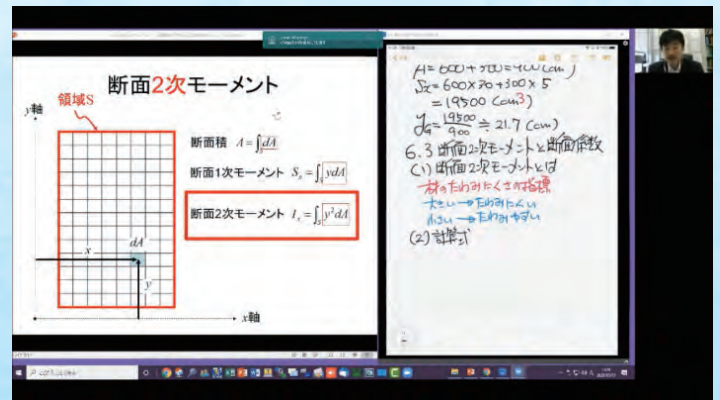 断面2次モーメント
領域S
y軸
断面積 A=∫_S dA
断面1次モーメント S_x=∫_S ydA
断面2次モーメント I_x=∫_S y²dA
dA
x
y
x軸
A=600+300=900(cm²)
Sx=600×30+300×5
=19500(cm3)
y_G=19500/900≒21.7(cm)
6.3 断面2次モーメントと断面係数
(1)断面2次モーメントとは
材のたわみにくさの指標
大きい→たわみにくい
小さい→たわみやすい
(2)計算式